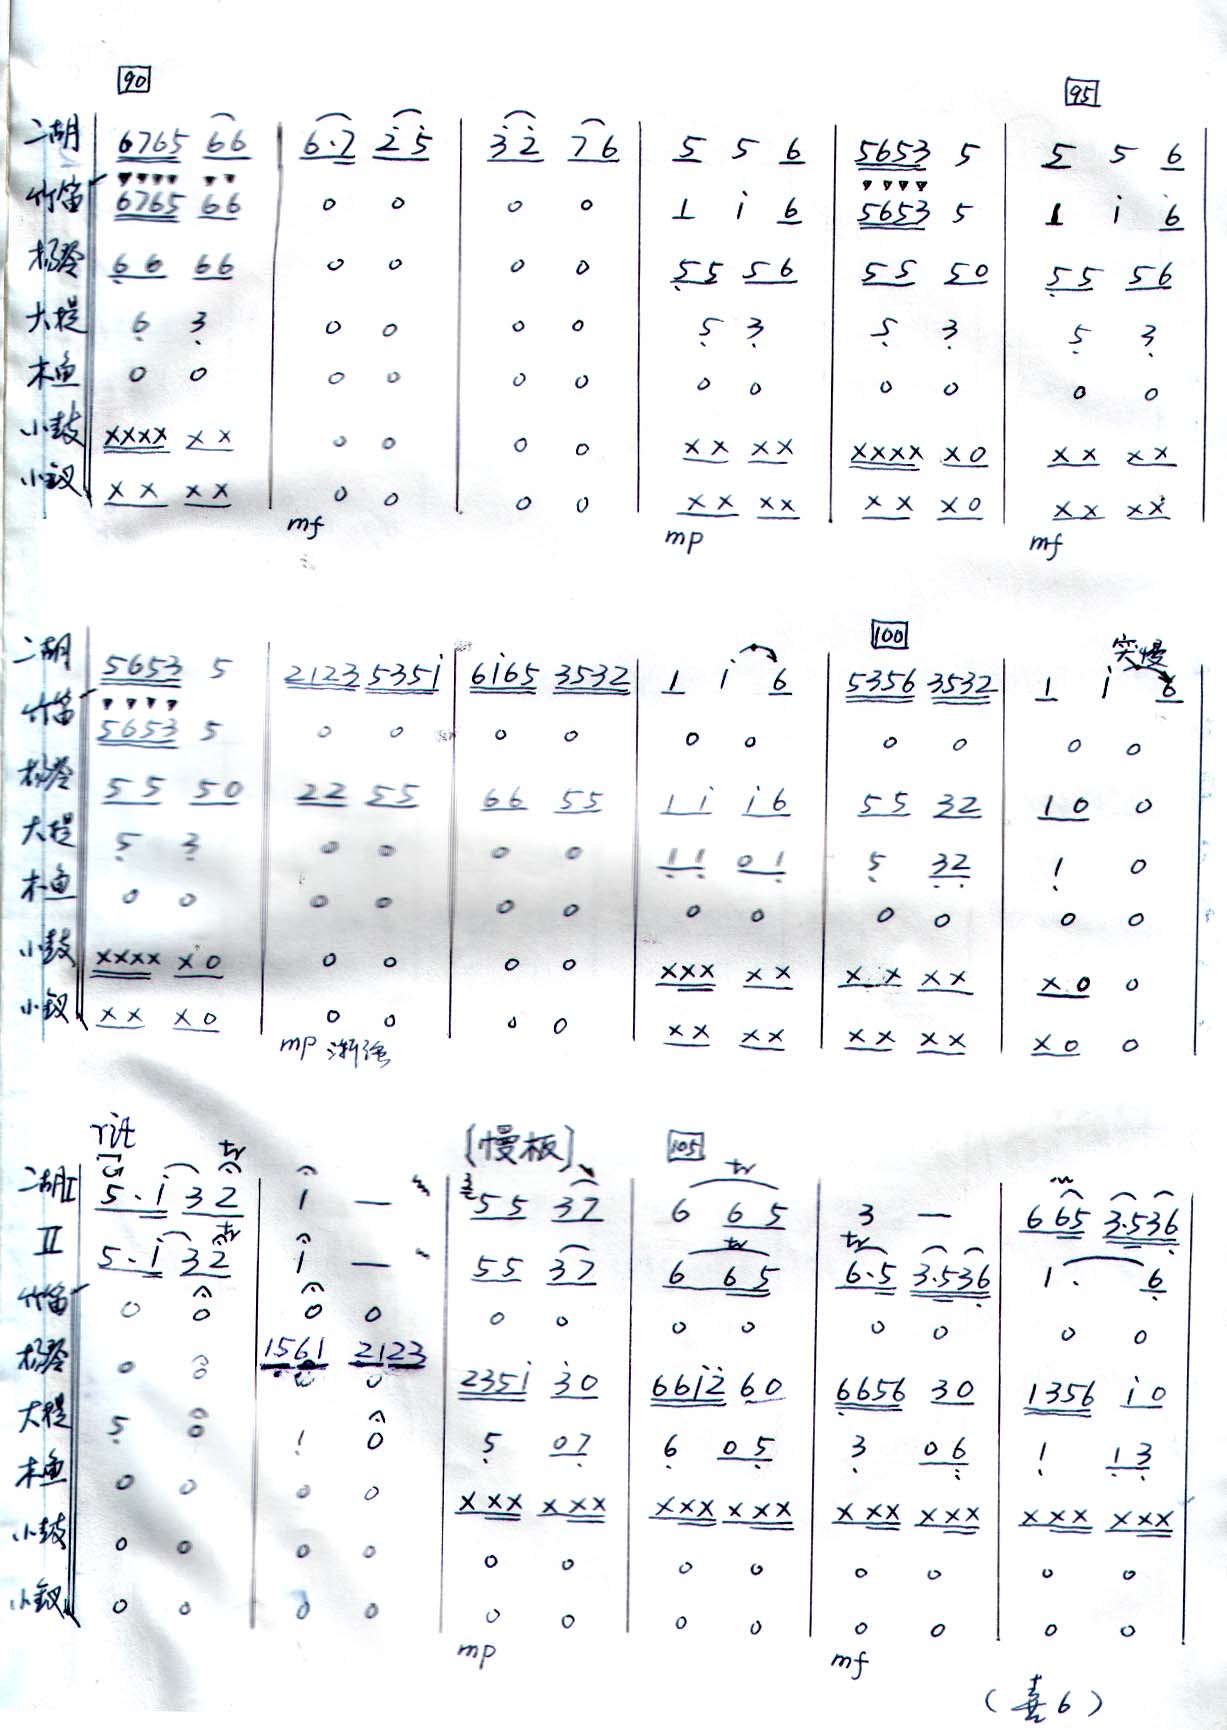 90 95
二胡 6765 66 | 6·7 2 5 | 3 2 7 6 | 5 5 6 | 5653 5 | 5 5 6
竹笛 6765 66 | 0 0 | 0 0 | 1 i 6 | 5653 5 | 1 i 6
扬琴 66 66 | 0 0 | 0 0 | 55 56 | 55 50 | 55 56
大提 6 3 | 0 0 | 0 0 | 5 3 | 5 3 | 5 3
木鱼 0 0 | 0 0 | 0 0 | 0 0 | 0 0 | 0 0
小鼓 XXXX XX | 0 0 | 0 0 | XX XX | XXXX X0 | XX XX
小钗 XX XX | 0 0 | 0 0 | XX XX | XX X0 | XX XX
mf mp mf
100 突慢
二胡 5653 5 | 2123 535i | 6i65 3532 | 1 i 6 | 5356 3532 | 1 i 6
竹笛 5653 5 | 0 0 | 0 0 | 0 0 | 0 0 | 0 0
扬琴 55 50 | 22 55 | 66 55 | 1i i6 | 55 32 | 10 0
大提 5 3 | 0 0 | 0 0 | 11 01 | 5 32 | 1 0
木鱼 0 0 | 0 0 | 0 0 | 0 0 | 0 0 | 0 0
小鼓 XXXX X0 | 0 0 | 0 0 | XXX XX | X X XX | X0 0
小钗 XX X0 | 0 0 | 0 0 | XX XX | XX XX | X0 0
mp 渐强
rit [慢板] 105
二胡I 5·i 3 2 tr | i — | 55 37 | 6 6 5 tr | 3 — | 6 65 3·536
II 5·i 3 2 tr | i — | 55 37 | 6 6 5 tr | 6·5 3·536 tr | 1· 6
竹笛 0 0 | 0 0 | 0 0 | 0 0 | 0 0 | 0 0
扬琴 0 0 | 1561 2123 0 | 235i 30 | 66i2 60 | 6656 30 | 1356 i0
大提 5 0 | 1 0 | 5 07 | 6 05 | 3 06 | 1 13
木鱼 0 0 | 0 0 | XXX XXX | XXX XXX | XXX XXX | XXX XXX
小鼓 0 0 | 0 0 | 0 0 | 0 0 | 0 0 | 0 0
小钗 0 0 | 0 0 | 0 0 | 0 0 | 0 0 | 0 0
mp mf
(喜6)